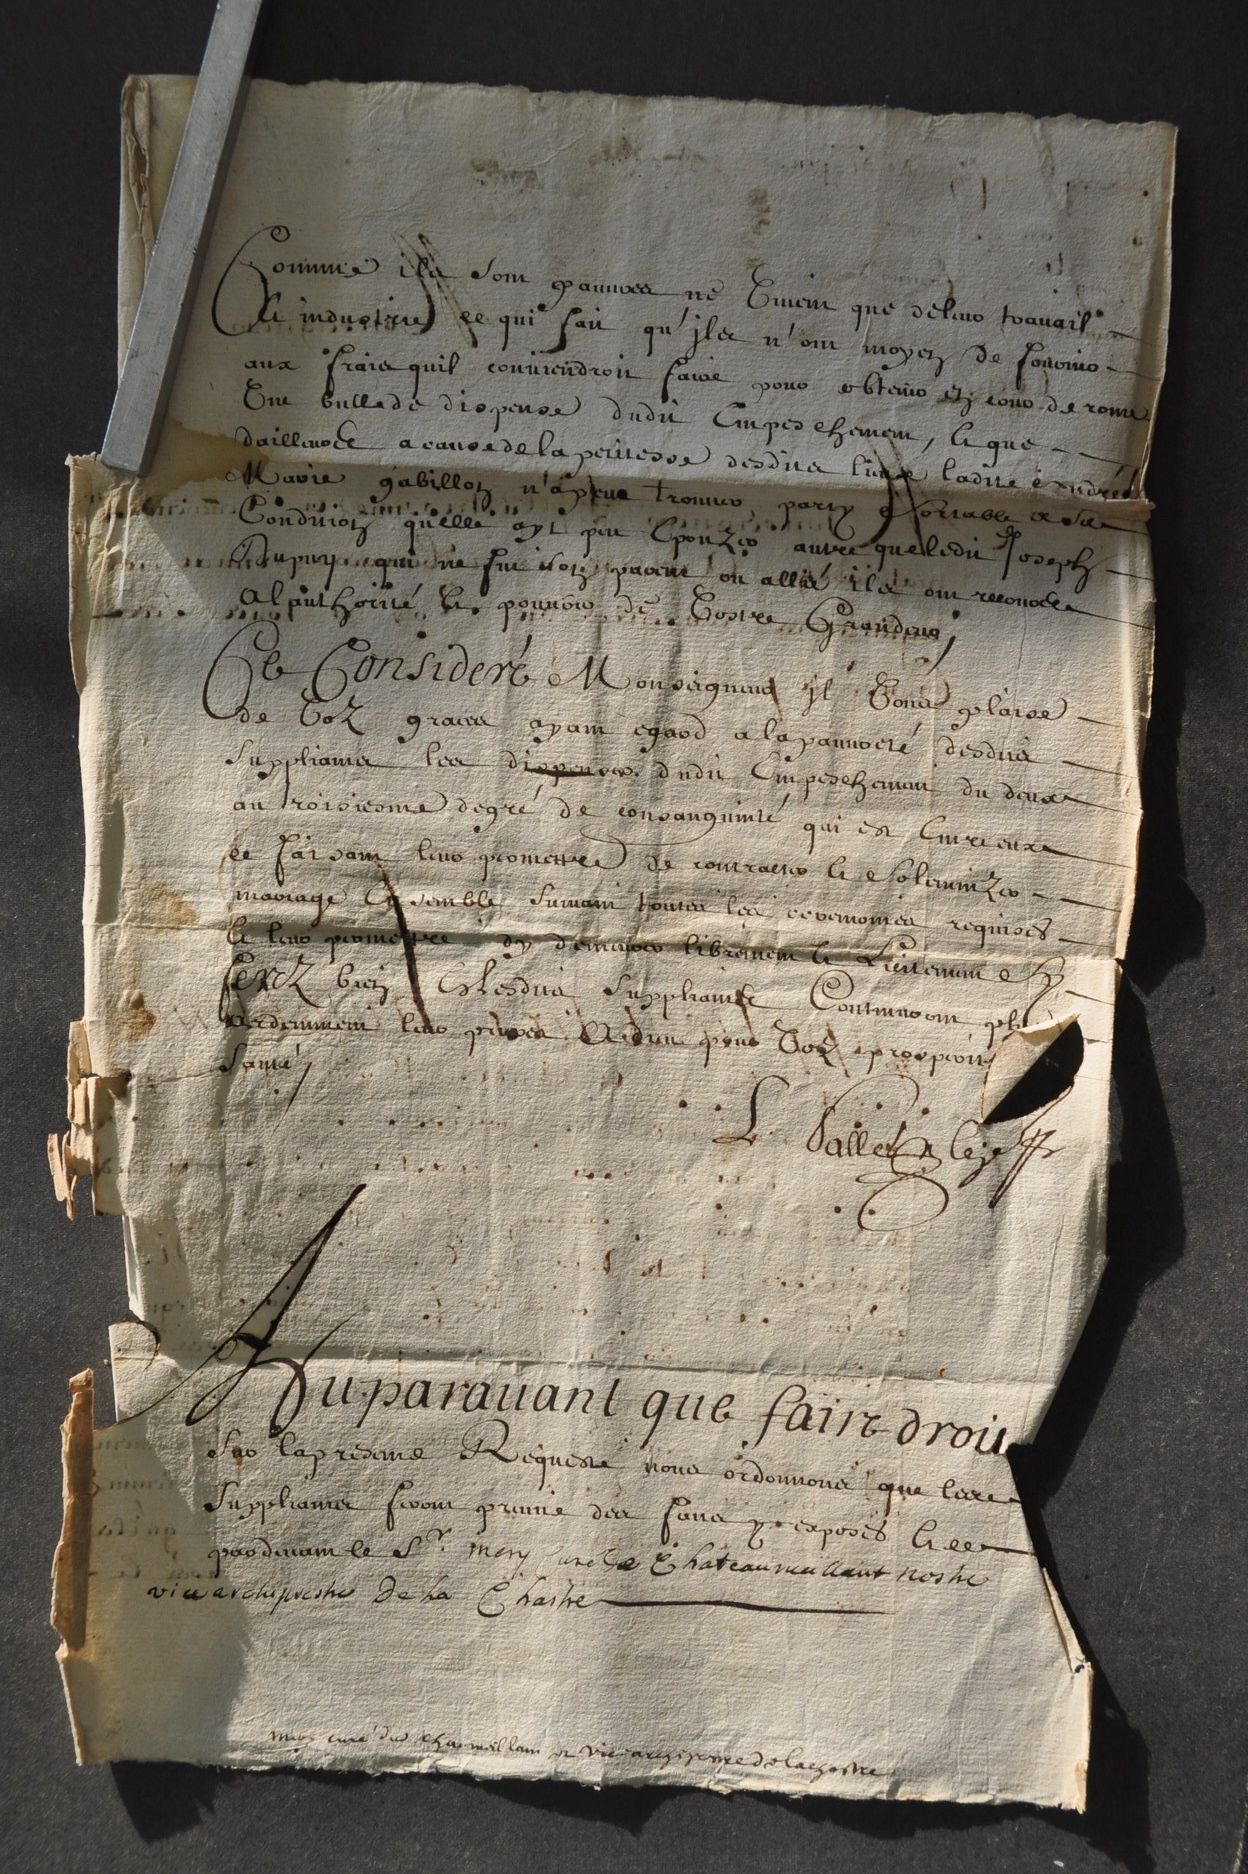 Comme ils sont pauvres ne vivent que de leur travail
et industrie ce qui fait qu'ils n'ont moyen de fournir
aux frais quil conviendroit faire pour obtenir en cour de rome
une bulle de dispense dudit empeschement, et que
dailleurs a cause de la petitesse desdits lieux ladite
Marie gabillon n'a peue trouver party sortable a sa
Condition qu'elle ayt peu epouzer autre que ledit Joseph
Dupuy qui ne fut son parent ou allié ils ont recours
a l'authorité et pouvoir de vostre Grandeur,
Ce Consideré Monseigneur il vous plaise
de voz graces ayant egard a la pauvreté desdits
suppliants les dispenser dudit empeschement du deux
au troisiesme degré de consanguinité qui est entre eux
ce faisant leur promettre de contracter et solemnizer
mariage ensemble suivant toutes les ceremonies requises
et leur promettre dy demeurer librement et licitement Sy
ferez bien et lesdits suppliants Continueront
ardemment leur prieres a dieu pour voz prosperité
santé,
L
Auparavant que faire droit
sur la presente Requeste nous ordonnons que les
suppliants feront preuve des faits y exposés et ce
pardevant le Sr. mery curé de Chateaumeillant nostre
vice archiprestre de la Chastre
mery curé de chaumeillant et vice archiprestre de la chastre